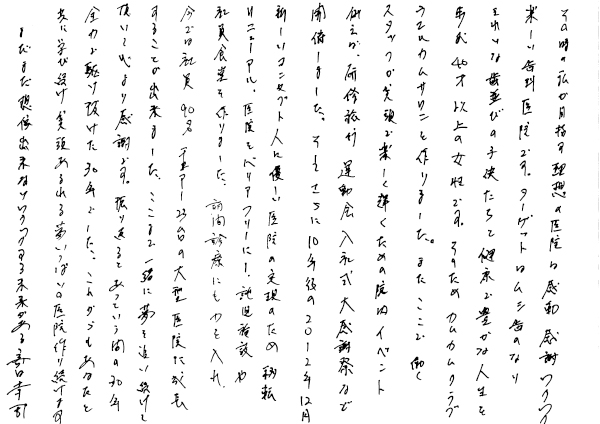 その時の私が目指す理想の医院は感動 感謝 ワクワク
楽しい歯科医院です。ターゲットはムシ歯のない
きれいな歯並びの子供たちと健康で豊かな人生を
歩む40才以上の女性です。そのため カムカムクラブ
ウエルカムサロンを作りました。また ここで 働く
スタッフが笑顔で楽しく輝くための院内イベント
研修旅行 運動会 入社式 大感謝祭など
開催しました。そしてさらに10年後の2012年12月
新しいコンセプト 人に優しい医院の実現のため 移転
リニューアル。医院をバリアフリーにし、託児施設や
社員食堂を作りました。訪問診療にも力を入れ
今では社員90名 チェアー23台の大型医院に成長
することが出来ました。ここまで一緒に夢を追い続けて
頂いて心より感謝です。振り返るとあっという間の30年
全力で駆け抜けた30年でした。これからもあなたと
共に学び続け 笑顔あふれる夢いっぱいの医院作り続けます
まだまだ想像出来ないワクワクする未来がある